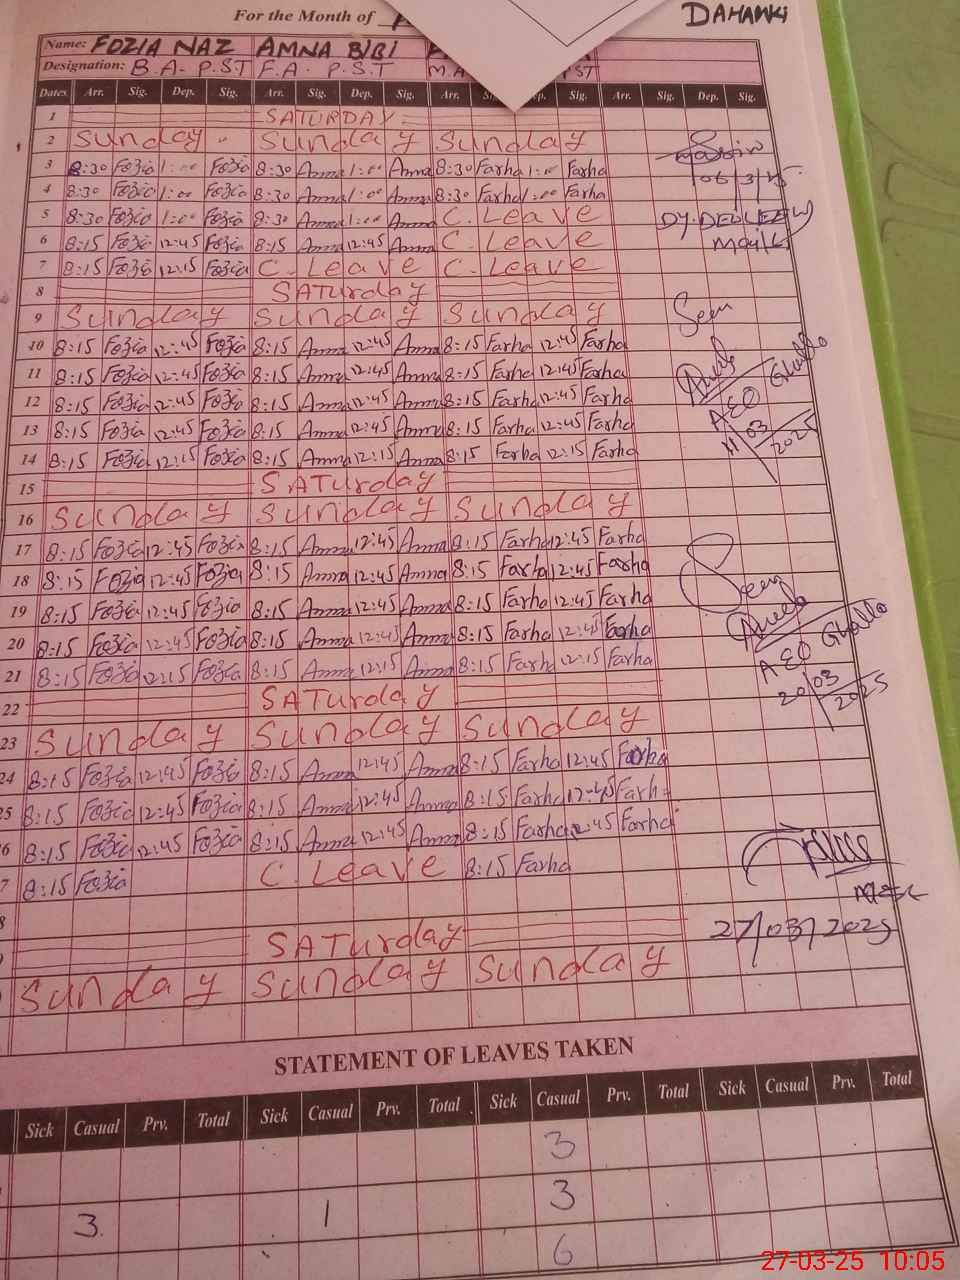 For the Month of
DAHARKI
Name: FOZIA NAZ AMNA BIBI
Designation: B.A. P.S.T F.A. P.S.T M.A PST
Dates Arr. Sig. Dep. Sig. Arr. Sig. Dep. Sig. Arr. Dep. Sig. Arr. Sig. Dep. Sig.
1 SATURDAY
2 Sunday Sunday Sunday
3 8:30 Fozia 1:00 Fozia 8:30 Amna 1:00 Amna 8:30 Farha 1:00 Farha
4 8:30 Fozia 1:00 Fozia 8:30 Amna 1:00 Amna 8:30 Farha 1:00 Farha
06/3/25
5 8:30 Fozia 1:00 Fozia 8:30 Amna 1:00 Amna C. Leave
6 8:15 Fozia 12:45 Fozia 8:15 Amna 12:45 Amna C. Leave
7 8:15 Fozia 12:15 Fozia C. Leave C. Leave
8 SATurday
9 Sunday Sunday Sunday
Seen
10 8:15 Fozia 12:45 Fozia 8:15 Amna 12:45 Amna 8:15 Farha 12:45 Farha
11 8:15 Fozia 12:45 Fozia 8:15 Amna 12:45 Amna 8:15 Farha 12:45 Farha
12 8:15 Fozia 12:45 Fozia 8:15 Amna 12:45 Amna 8:15 Farha 12:45 Farha
AEO Ghallo
13 8:15 Fozia 12:45 Fozia 8:15 Amna 12:45 Amna 8:15 Farha 12:45 Farha
11/03/2025
14 8:15 Fozia 12:15 Fozia 8:15 Amna 12:15 Amna 8:15 Farha 12:15 Farha
15 SATurday
16 Sunday Sunday Sunday
17 8:15 Fozia 12:45 Fozia 8:15 Amna 12:45 Amna 8:15 Farha 12:45 Farha
18 8:15 Fozia 12:45 Fozia 8:15 Amna 12:45 Amna 8:15 Farha 12:45 Farha
Seen
19 8:15 Fozia 12:45 Fozia 8:15 Amna 12:45 Amna 8:15 Farha 12:45 Farha
20 8:15 Fozia 12:45 Fozia 8:15 Amna 12:45 Amna 8:15 Farha 12:45 Farha
AEO Ghallo
21 8:15 Fozia 12:15 Fozia 8:15 Amna 12:15 Amna 8:15 Farha 12:15 Farha
20/03/2025
22 SATurday
23 Sunday Sunday Sunday
24 8:15 Fozia 12:45 Fozia 8:15 Amna 12:45 Amna 8:15 Farha 12:45 Farha
25 8:15 Fozia 12:45 Fozia 8:15 Amna 12:45 Amna 8:15 Farha 12:45 Farha
6 8:15 Fozia 12:45 Fozia 8:15 Amna 12:45 Amna 8:15 Farha 12:45 Farha
7 8:15 Fozia C. Leave 8:15 Farha
8
27/03/2025
SATurday
Sunday Sunday Sunday
STATEMENT OF LEAVES TAKEN
Sick Casual Prv. Total Sick Casual Prv. Total Sick Casual Prv. Total Sick Casual Prv. Total
3
3 1 3
6
27-03-25 10:05